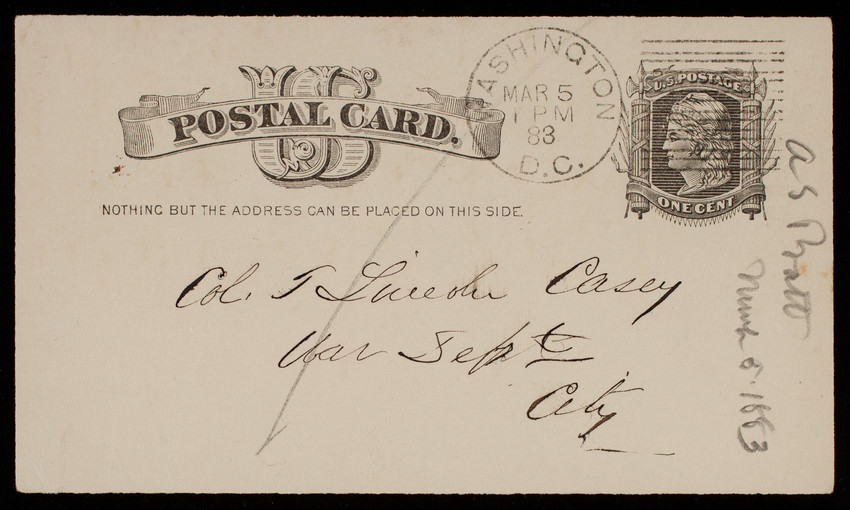 US
POSTAL CARD.
WASHINGTON
MAR 5
1 PM
83
D.C.
U.S. POSTAGE
ONE CENT
NOTHING BUT THE ADDRESS CAN BE PLACED ON THIS SIDE.
Col. T Lincoln Casey
War Dept
City
A S Pratt
March 5. 1883